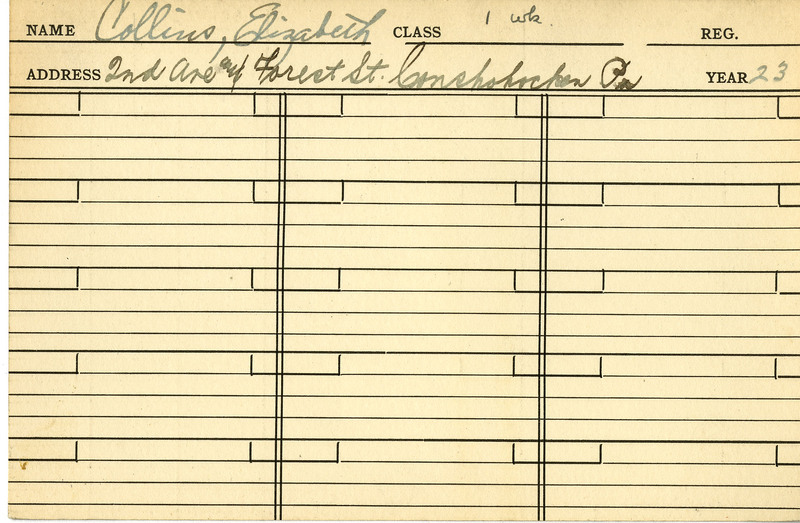 NAME Collins, Elizabeth CLASS 1 wk. REG.
ADDRESS 2nd Ave and Forest St. Conshohocken Pa YEAR 23